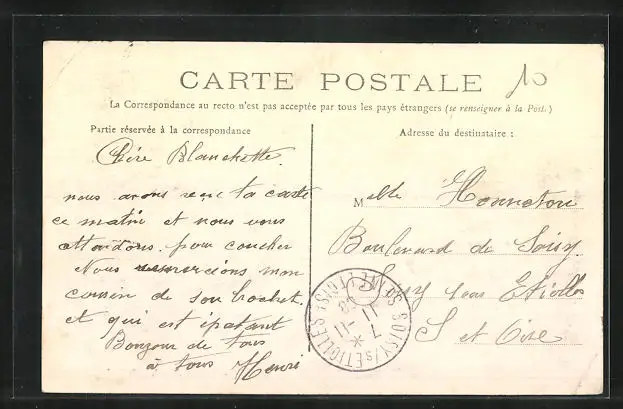 10
CARTE POSTALE
La Correspondance au recto n'est pas acceptée par tous les pays étrangers (se renseigner à la Post.)
Partie réservée à la correspondance
Chère Blanchette.
nous avons reçu ta carte
ce matin et nous vous
attendons pour coucher
Nous remercions mon
cousin de son
et qui est épatant
Bonjour de tous
à tous Henri
Adresse du destinataire :
Melle Honneton
Boulevard de Soisy
Soisy sous Etiolles
S et Oise
SOISY S ETIOLLES
7 - 11
11